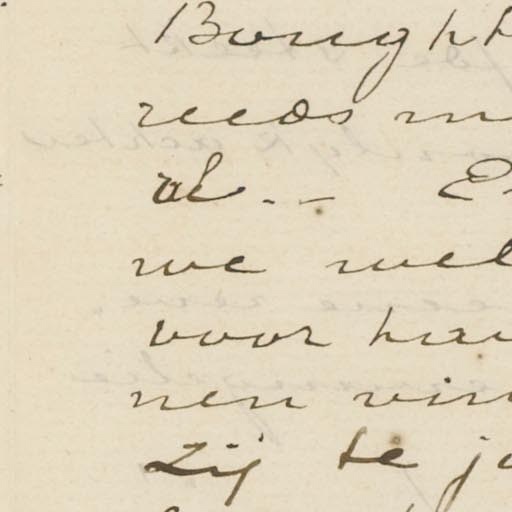 Bough
reeds
ik. –
we wel
voor
nen vin
Zij te j